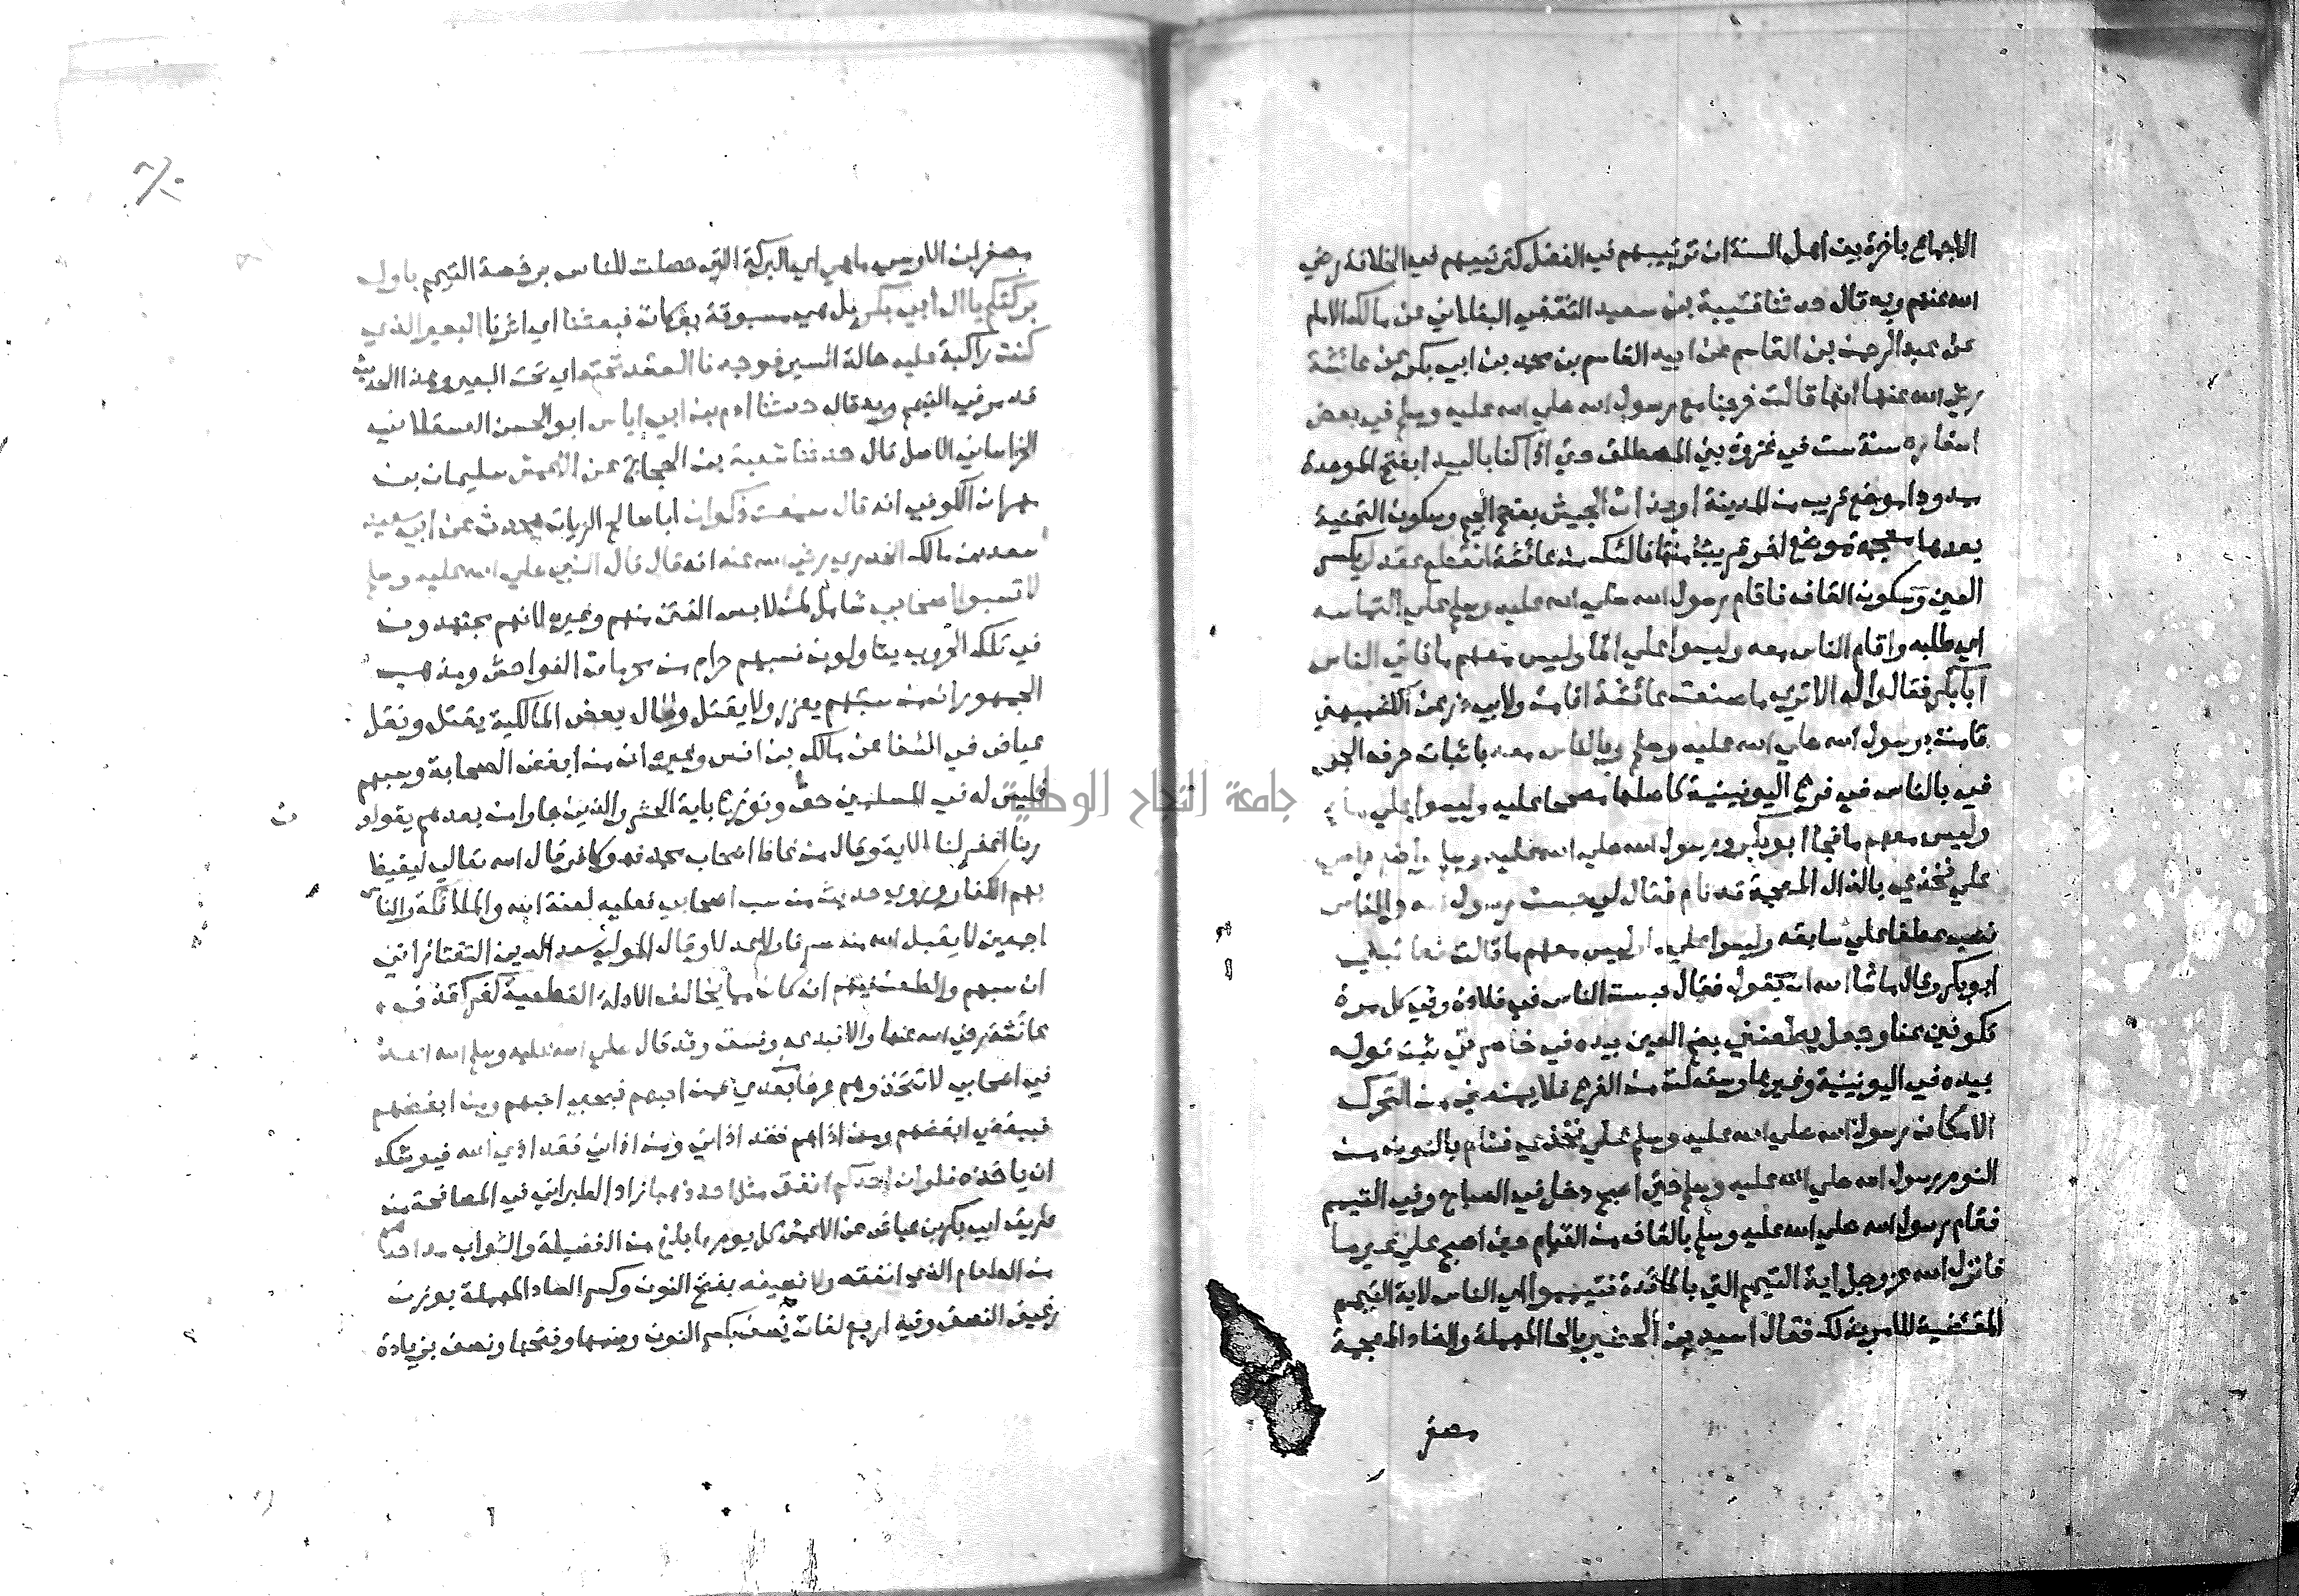 الاجماع باخرة بين اهل السنة ان ترتيبهم في الفضل كترتيبهم في الخلافة رضي
الله عنهم وبه قال حدثنا قتيبة بن سعيد الثقفي البغلاني عن مالك الامام
عن عبد الرحمن بن القاسم عن ابيه القاسم بن محمد بن ابي بكر عن عائشة
رضي الله عنها انها قالت خرجنا مع رسول الله صلي الله عليه وسلم في بعض
اسفاره سنة ست في غزوة بني المصطلق حتي اذا كنا بالبيدا بفتح الموحدة
ممدودا موضع قريب من المدينة او بذات الجيش بفتح الجيم وسكون التحتية
بعدها معجمة موضع اخر قريب منها والشك من عائشة انقطع عقد لي بكسر
العين وسكون القاف فاقام رسول الله صلي الله عليه وسلم علي التماسه
اي طلبه واقام الناس معه وليسوا علي ما وليس معهم ما فاتي الناس
ابا بكر فقالوا له الا تري ما صنعت عائشة اقامت ولابي ذر عن الكشميهني
قامت برسول الله صلي الله عليه وسلم وبالناس معه باثبات حرف الجر
في بالناس في فرع اليونينية كاصلها مصححا عليه وليسوا علي ما
وليس معهم ما فجا ابو بكر ورسول الله صلي الله عليه وسلم واضع راسه
علي فخذي بالذال المعجمة قد نام فقال لي حبست رسول الله والناس
نصب عطفا علي سابقه وليسوا علي ما وليس معهم ما قالت فعاتبني
ابو بكر وقال ما شا الله ان يقول فقال حبست الناس في قلادة وفي كل مرة
تكونين عنا وجعل يطعنني بضم العين بيده في خاصرتي ثبت قوله
بيده في اليونينية وغيرها وسقطت من الفرع فلا يمنعني من التحرك
الا مكان رسول الله صلي الله عليه وسلم علي فخذي فنام بالنون من
النوم رسول الله صلي الله عليه وسلم حتي اصبح دخل في الصباح وفي التيمم
فقام رسول الله صلي الله عليه وسلم بالقاف من القيام حين اصبح علي غير ما
فانزل الله عز وجل اية التيمم التي بالمائدة فتيمموا اي الناس لاية التيمم
المقتضية للامر بذلك فقال اسيد بن الحضير بالحا المهملة والضاد المعجمة
مصغر
مصغر ابن الاويسي ما هي اي البركة التي حصلت للناس برخصة التيمم باول
بركتكم يا ال ابي بكر بل هي مسبوقة ببركات فبعثنا اي اثرنا البعير الذي
كنت راكبة عليه حالة السير فوجدنا العقد تحته اي تحت البعير وهذا الحديث
قد مر في التيمم وبه قال حدثنا ادم بن ابي اياس ابو الحسن العسقلاني
الخراساني الاصل قال حدثنا شعبة بن الحجاج عن الاعمش سليمان بن
مهران الكوفي انه قال سمعت ذكوان ابا صالح الزيات يحدث عن ابي سعيد
سعد بن مالك الخدري رضي الله عنه انه قال قال النبي صلي الله عليه وسلم
لا تسبوا اصحابي شامل لمن لابس الفتن منهم وغيره لانهم مجتهدون
في تلك الحروب يتاولون فسبهم حرام من محرمات الفواحش ومذهب
الجمهور ان من سبهم يعزر ولا يقتل وقال بعض المالكية يقتل ونقل
عياض في الشفا عن مالك بن انس وغيره ان من ابغض الصحابة وسبهم
فليس له في المسلمين حق ونوزع باية الحشر والذين جاوا من بعدهم يقولو
ن
ربنا اغفر لنا الاية وقال من غاظ اصحاب محمد فهو كافر قال الله تعالي ليغيظ
بهم الكفار وروي حديث من سب اصحابي فعليه لعنة الله والملائكة والناس
اجمعين لا يقبل الله منه صرفا ولا عدلا وقال المولي سعد الدين التفتازاني
ان سبهم والطعن فيهم ان كان مما يخالف الادلة القطعية فكفر كقذف
عائشة رضي الله عنها والا فبدعة وفسق وقد قال صلي الله عليه وسلم الله الله
في اصحابي لا تتخذوهم غرضا بعدي فمن احبهم فبحبي احبهم ومن ابغضهم
فببغضي ابغضهم ومن اذاهم فقد اذاني ومن اذاني فقد اذي الله فيوشك
ان ياخذه فلو ان احدكم انفق مثل احد ذهبا زاد الطبراني في المصافحة من
طريق ابي بكر بن عياش عن الاعمش كل يوم ما بلغ من الفضيلة والثواب مد احدهم
من الطعام الذي انفقه ولا نصيفه بفتح النون وكسر الصاد المهملة بوزن
رغيف النصف وفيه اربع لغات نصف بكسر النون وضمها وفتحها ونصيف بزيادة
جامعة النجاح الوطنية